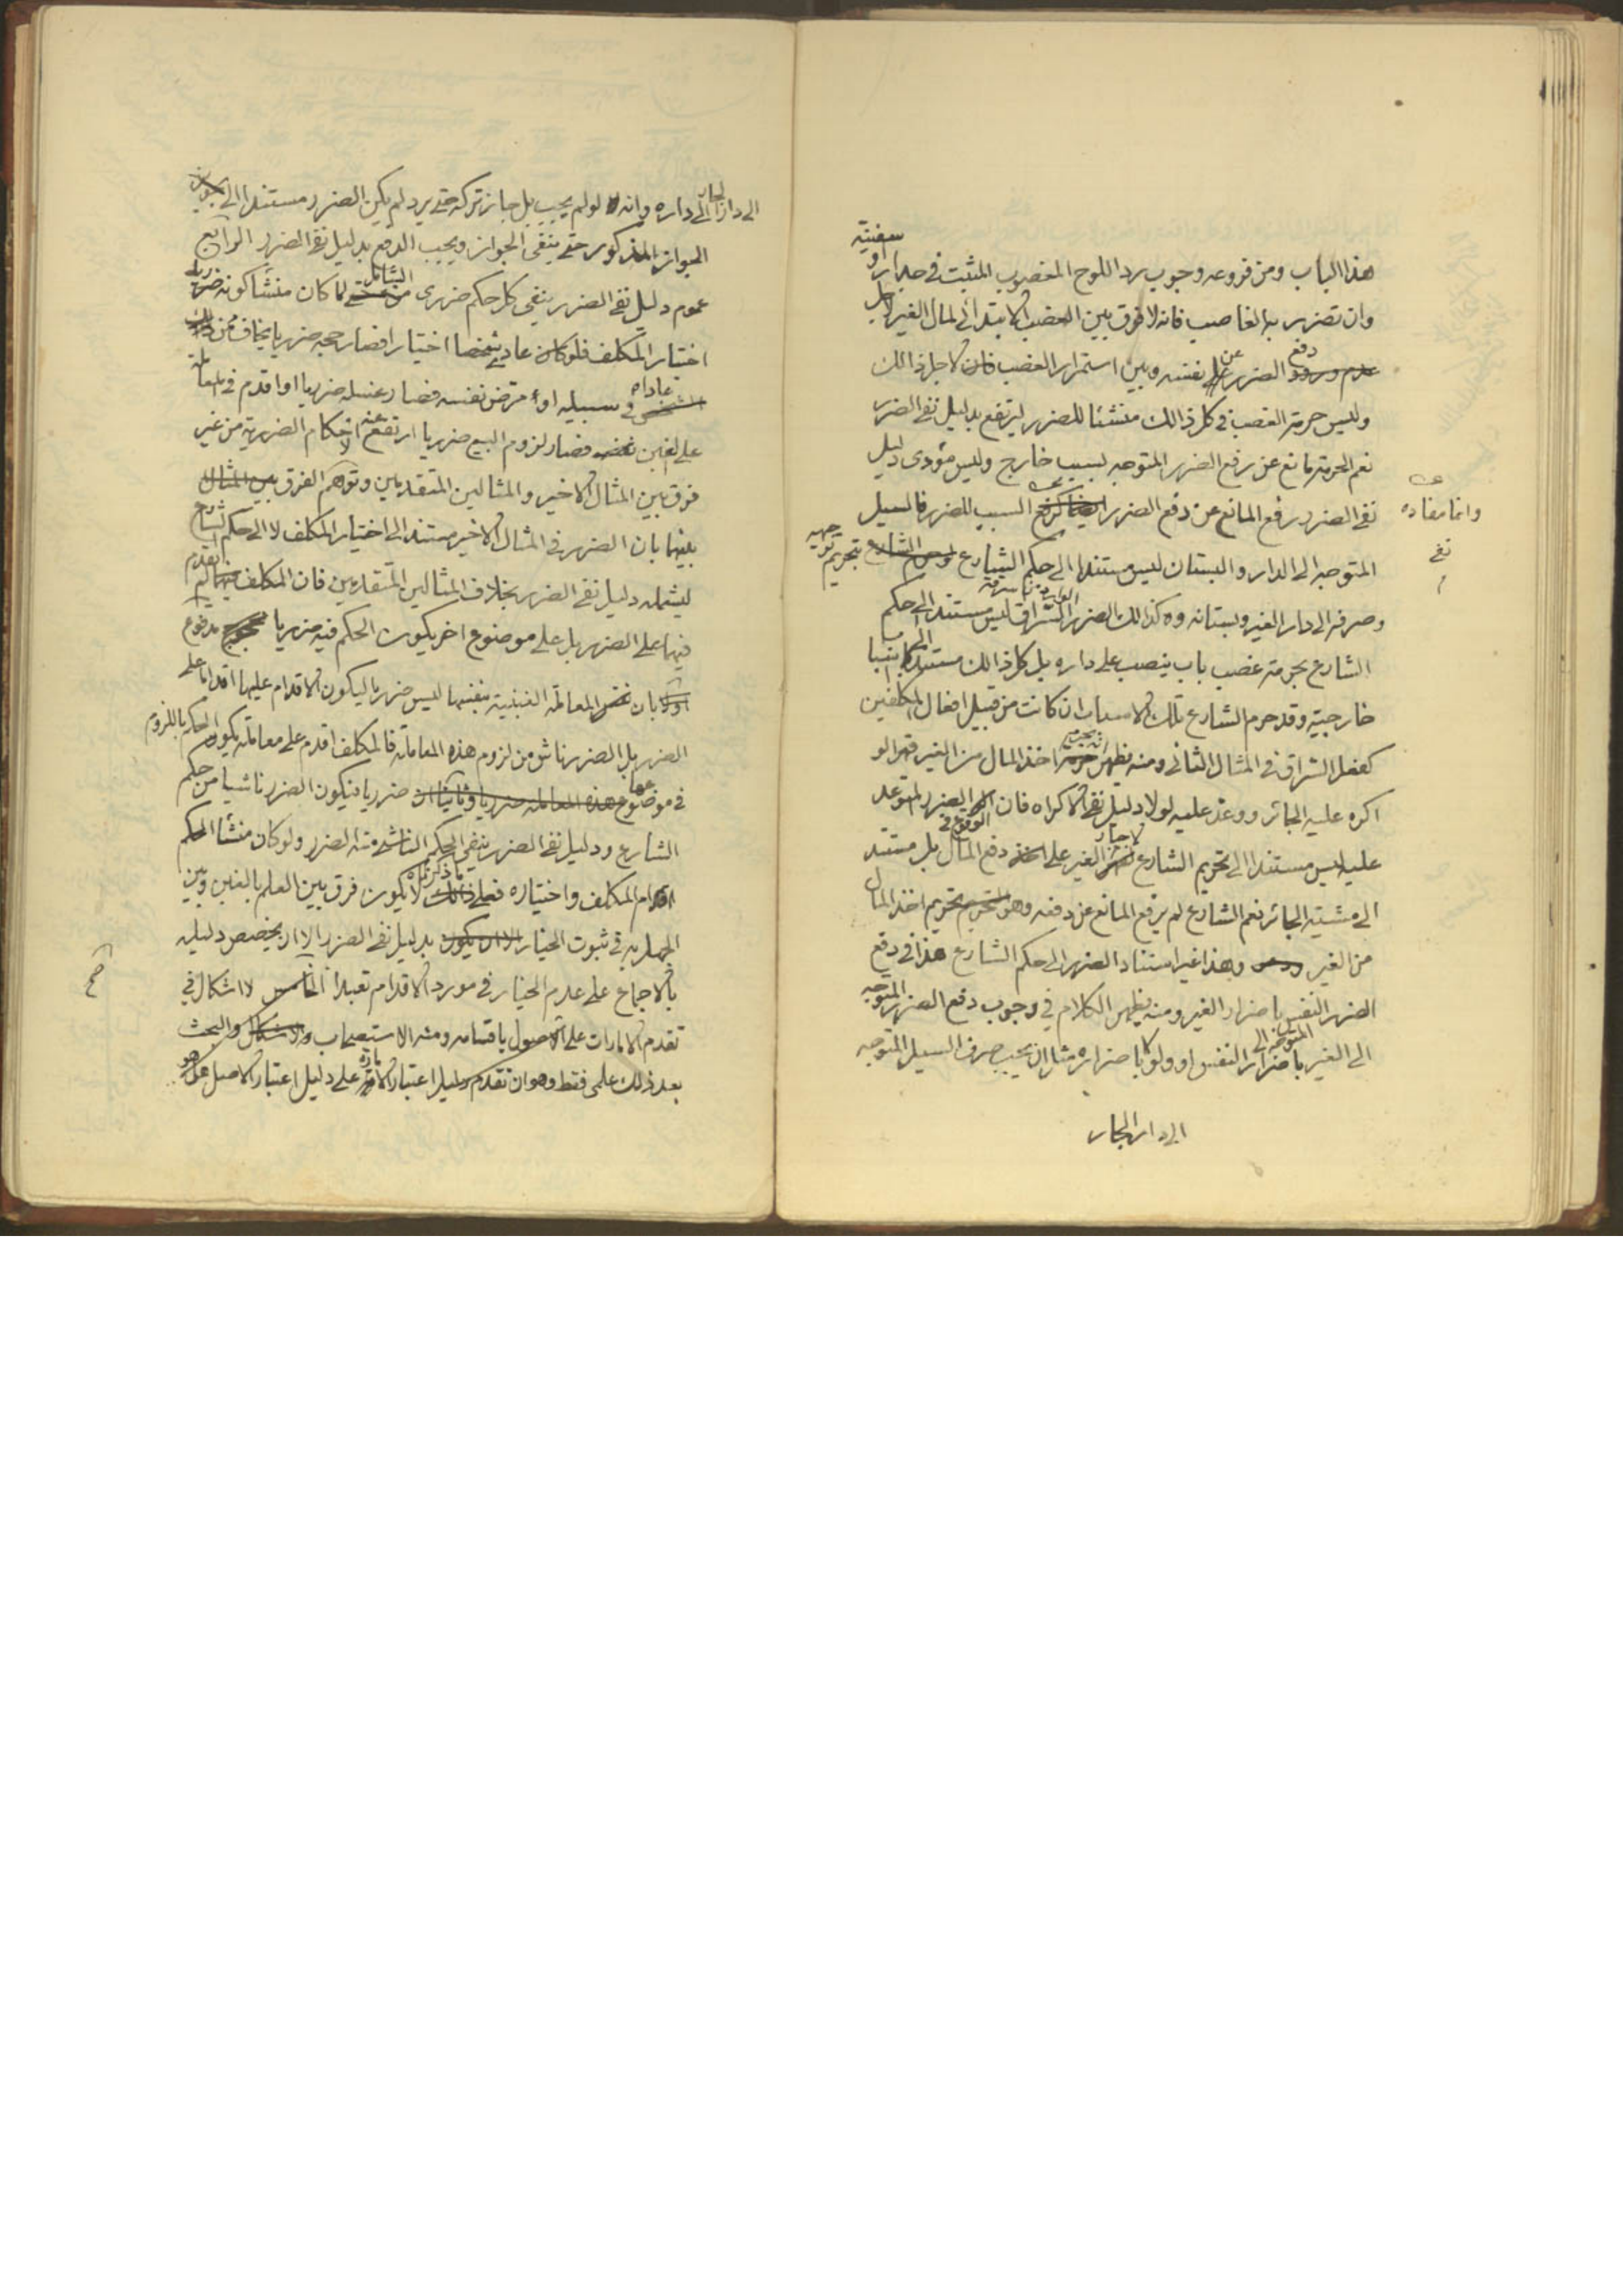 هذا الباب ومن فروعه وجوب رد اللوح المغصوب المثبت في جدار او سفينته
وان تضرر به الغاصب فانه لا فرق بين الغصب الابتدائي لمال الغير لاجل
دفع الضرر عن نفسه وبين استمرار الغصب لاجل ذالك
وليس حرمة الغصب في كل ذالك منشئا للضرر ليرتفع بدليل نفي الضرر
نعم الحرمة مانع عن رفع الضرر المتوجه بسبب خارج وليس مؤدى دليل
نفي الضرر رفع المانع عن دفع الضرر وانما مفاده نفي السبب للضرر فالسيل
المتوجه الى الدار والبستان ليس مستندا الى حكم الشارع بتحريم توجيهه
وصرفه الى دار الغير وبستانه وكذالك الضرر السراق ليس مستند الى حكم
الشارع بحرمة غصب باب ينصب على داره بل كل ذالك مستند الى اسباب
خارجية وقد حرم الشارع تلك الاسباب ان كانت من قبيل افعال المكلفين
كفعل السراق في المثال الثاني ومنه يظهر اخذ المال من الغير قهرا لو
اكره عليه الجائر ووعد عليه لولا دليل نفي الاكراه فان الضرر المتوعد
عليه ليس مستندا الى تحريم الشارع الغير على دفع المال بل مستند
الى مشية الجائر نعم الشارع لم يرفع المانع عن دفعه وهو تحريم اخذ المال
من الغير وهذا غير استناد الضرر الى حكم الشارع هذا في دفع
الضرر النفس باضرار الغير ومنه يظهر الكلام في وجوب دفع الضرر المتوجه
الى الغير باضرار النفس او ولو لا باضراره مثل ان يجب صرف السيل المتوجه
الى دار الجار
الى دار الجار الى داره وانه لو لم يجب بل جاز تركه حتى يرد لم يكن الضرر مستندا الى
الجواز المذكور حتى ينتفي الجواز ويجب الدفع بدليل نفي الضرر الرابع
عموم دليل نفي الضرر ينفي كل حكم ضرري الشامل لما كان منشأ كونه ضرريا
اختيار المكلف فلو عادى شخصا اختيارا فصار حجه ضرريا يخاف ممن
عاداه في سبيله او امرض نفسه فصار غسله ضرريا او اقدم في معاملة
على الغبن فصار لزوم البيع ضرريا ارتفع عنه احكام الضررية من غير
فرق بين المثال الاخير والمثالين المتقدمين وتوهم الفرق
بينها بان الضرر في المثال الاخير مستند الى اختيار المكلف لا الى حكم الشارع
ليشمله دليل نفي الضرر بخلاف المثالين المتقدمين فان المكلف لم يقدم
فيهما على الضرر بل على موضوع اخر يكون الحكم فيه ضرريا مدفوع
بان المعاملة الغبنية بنفسها ليس ضرريا ليكون الاقدام عليها اقداما على
الضرر بل الضرر ناش من لزوم هذه المعاملة فالمكلف اقدم على معاملة يكون الحكم باللزوم
في موضوعها ضرريا فيكون الضرر ناشيا من حكم
الشارع ودليل نفي الضرر ينفي الحكم الناشئ منه الضرر ولو كان منشأ الحكم
اقدام المكلف واختياره فعلى ما ذكرناه لا يكون فرق بين العلم بالغبن وبين
الجهل به في ثبوت الخيار بدليل نفي الضرر الا ان يخصص دليله
بالاجماع على عدم الخيار في مورد الاقدام تعبدا الخامس لا اشكال في
تقدم الامارات على الاصول باقسامه ومنه الاستصحاب والبحث
بعد ذلك علمي فقط وهو ان تقدم دليل اعتبار الامارة على دليل اعتبار الاصل هل هو